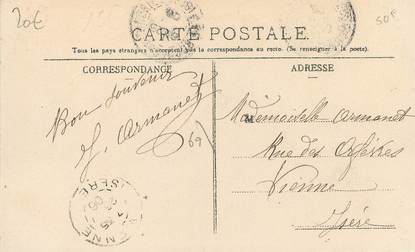 20€
50F
CARTE POSTALE.
Tous les pays étrangers n'acceptent pas la correspondance au recto. (Se renseigner à la poste).
CORRESPONDANCE
ADRESSE
Bon souvenir
J. Armanet
69
Mademoiselle Armanet
Rue des Orfèvres
Vienne
Isère
VIENNE
ISERE